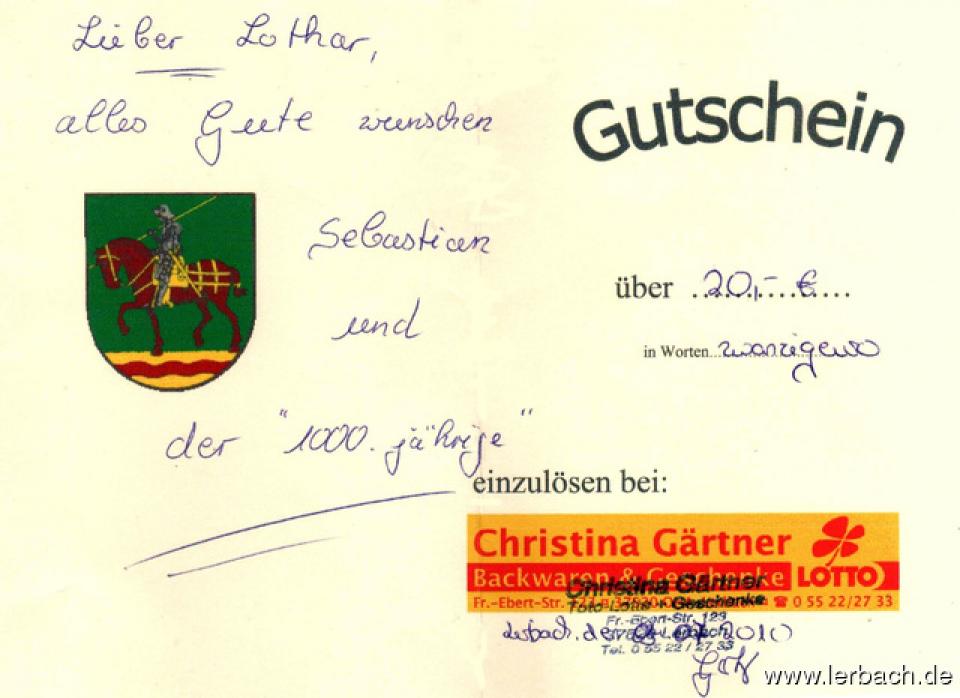 Lieber Lothar,
alles Gute wünschen
Sebastian
und
der "1000. jährige"
Gutschein
über ..20,-..€...
in Worten...zwanzigeuro
einzulösen bei:
Christina Gärtner
Backwaren & Geschenke LOTTO
Fr.-Ebert-Str. ☎ 0 55 22/27 33
Christina Gärtner
Toto Lotto - Geschenke
Fr.-Ebert-Str. 123
Lerbach
Tel. 0 55 22 / 27 33
Lerbach, de 07 2010
www.lerbach.de